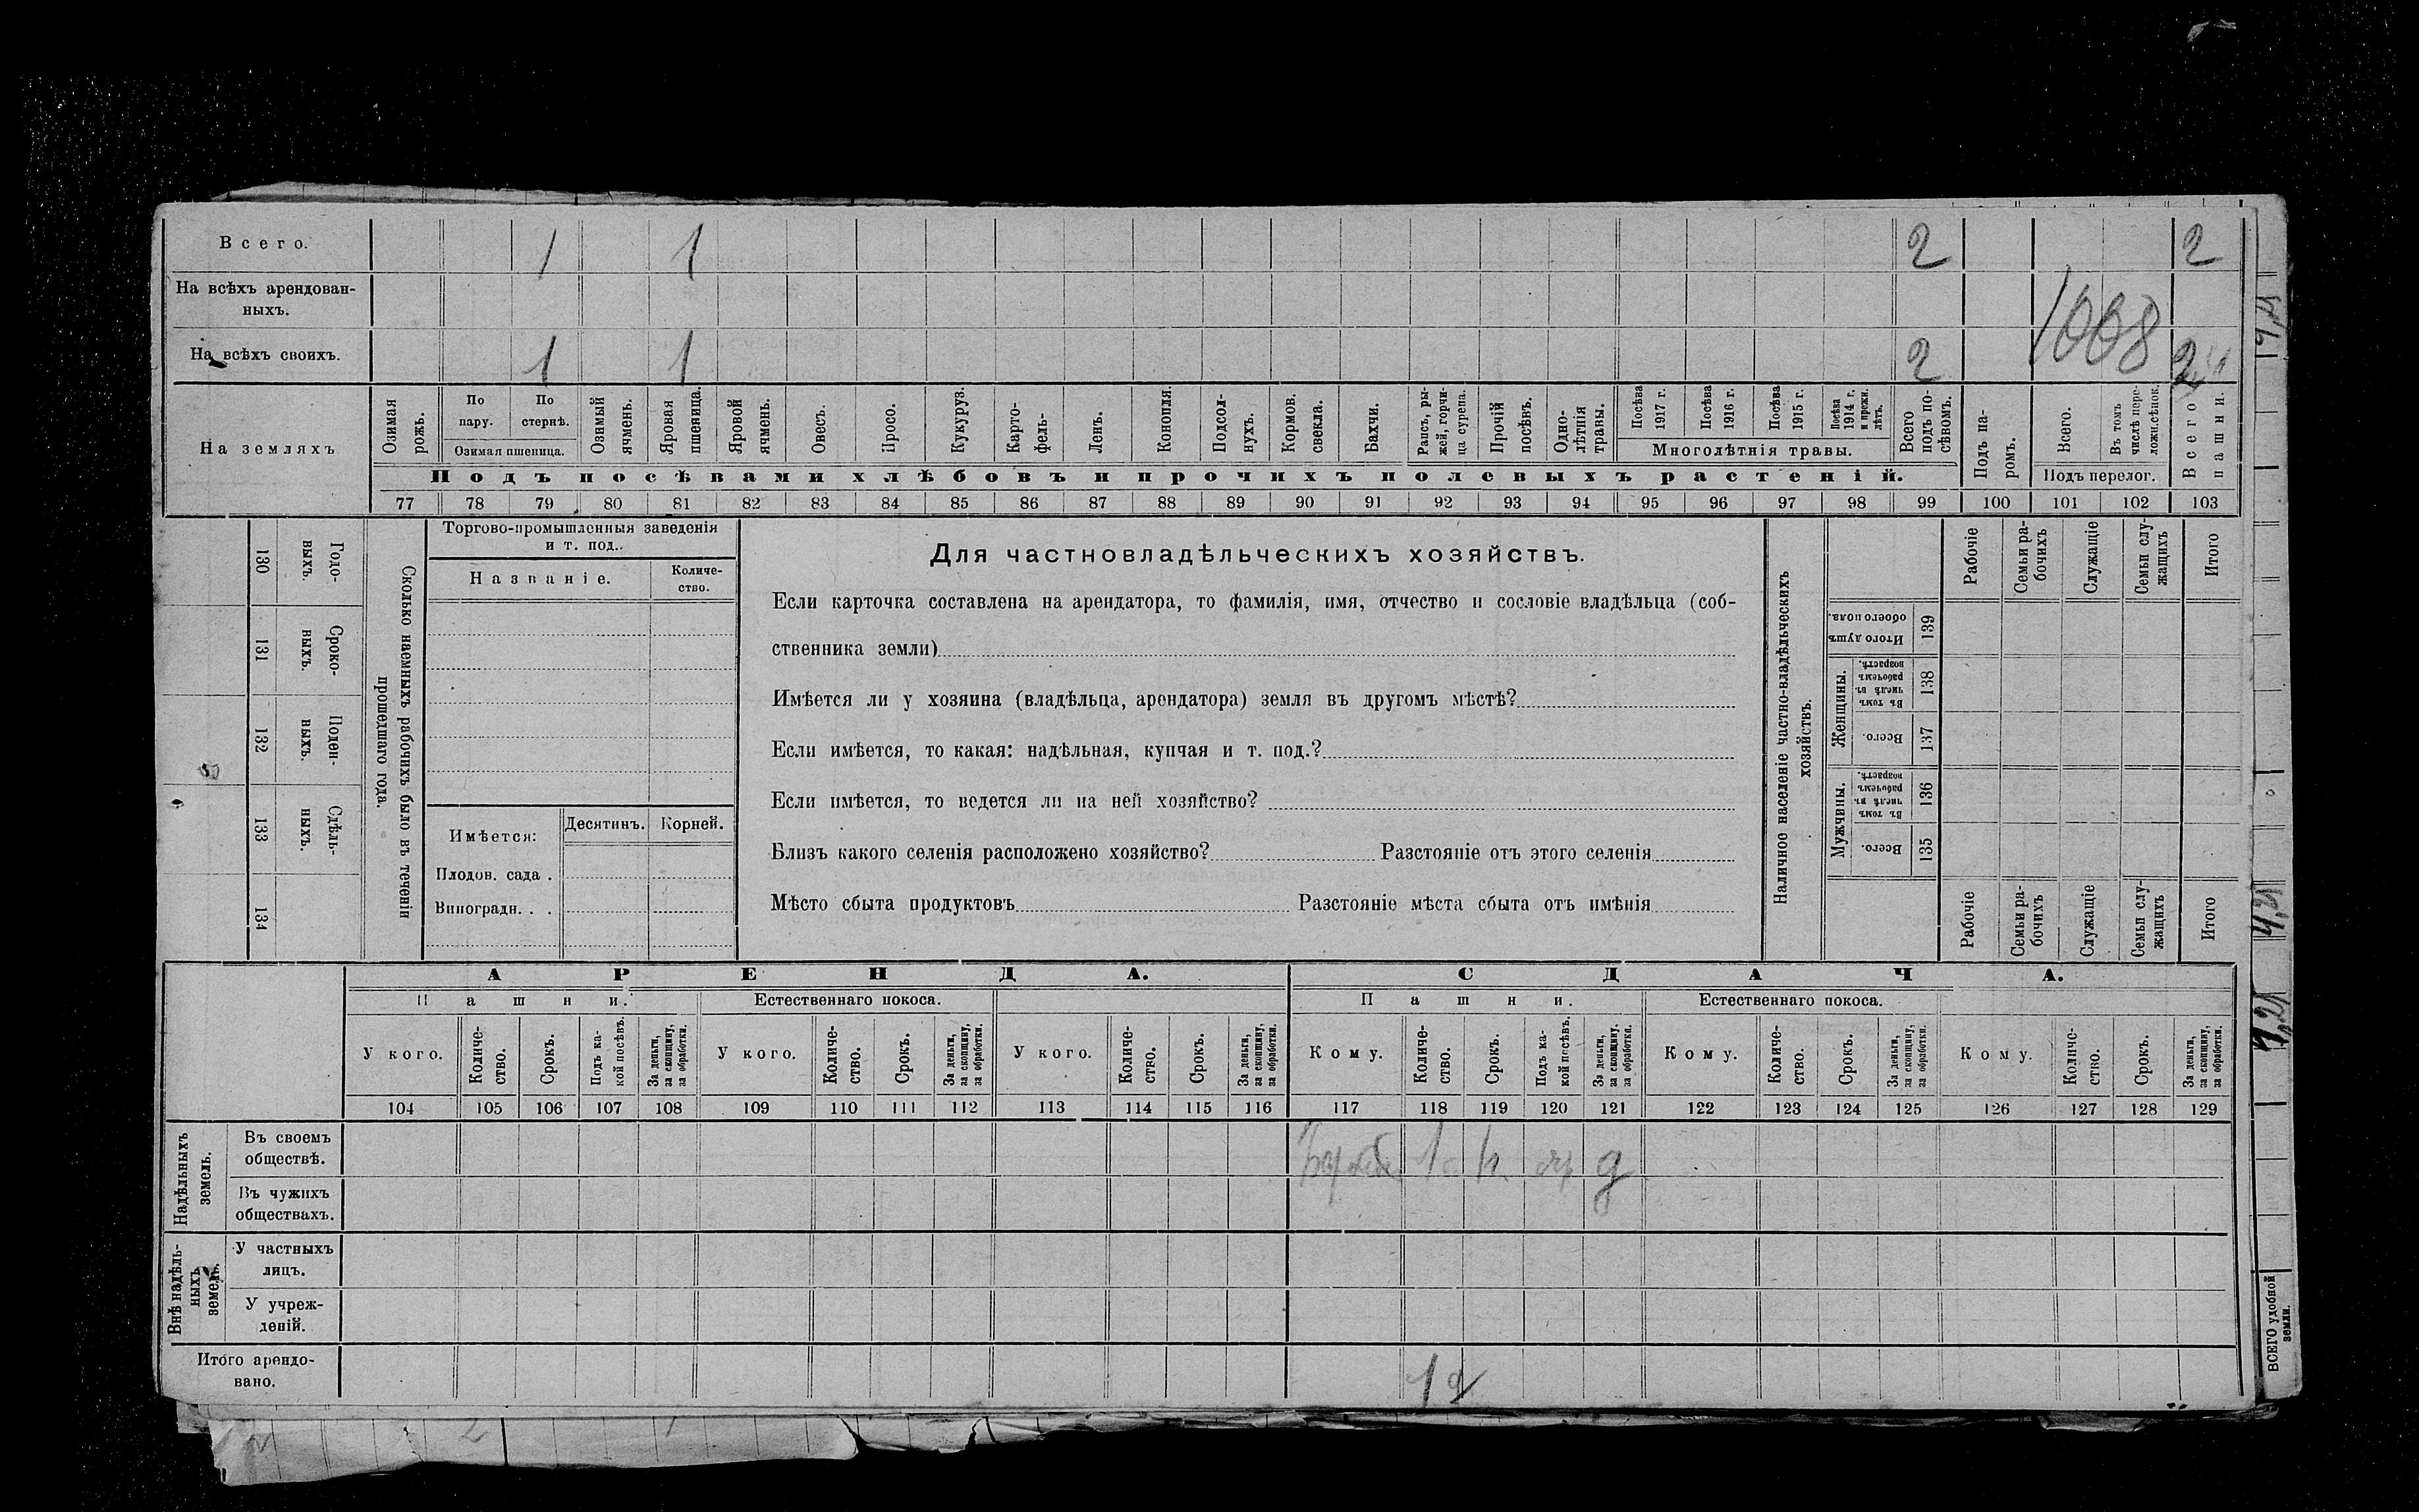 Всего. 1 1 2 2
На всѣхъ арендован-
ныхъ.
1008
На всѣхъ своихъ. 1 1 2
На земляхъ
Озимая рожь.
По пару.
По стернѣ.
Озимая пшеница.
Озимый ячмень.
Яровая пшеница.
Яровой ячмень.
Овесъ.
Просо.
Кукуруз.
Карто-
фель-
Ленъ.
Конопля.
Подсол-
нухъ.
Кормов.
свекла.
Бахчи.
Рапсъ, ры-
жей, горчи-
ца сурепа.
Прочій
посѣвъ.
Одно-
лѣтнія
травы.
Посѣва
1917 г.
Посѣва
1916 г.
Посѣва
1915 г.
Посѣва
1914 г.
и прежн.
лѣтъ.
Многолѣтнія травы.
Всего
подъ по-
сѣвомъ.
Подъ па-
ромъ.
Всего.
Въ томъ
числѣ пере-
ложн.сѣнок.
Подъ перелог.
Всего
пашни.
Подъ посѣвами хлѣбовъ и прочихъ полевыхъ растеній.
77 78 79 80 81 82 83 84 85 86 87 88 89 90 91 92 93 94 95 96 97 98 99 100 101 102 103
Годо-
выхъ.
130
Сроко-
ныхъ.
131
Поден-
ныхъ.
132
Сдѣль-
ныхъ.
133
134
Сколько наемныхъ рабочихъ было въ теченіи
прошедшаго года.
Торгово-промышленныя заведенія
и т. под..
Названіе.
Количе-
ство.
Имѣется:
Десятинъ.
Корней.
Плодов. сада .
Виноградн. . .
Для частновладѣльческихъ хозяйствъ.
Если карточка составлена на арендатора, то фамилія, имя, отчество и сословіе владѣльца (соб-
ственника земли)
Имѣется ли у хозяина (владѣльца, арендатора) земля въ другомъ мѣстѣ?
Если имѣется, то какая: надѣльная, купчая и т. под.?
Если имѣется, то ведется ли на ней хозяйство?
Близъ какого селенія расположено хозяйство? Разстояніе отъ этого селенія
Мѣсто сбыта продуктовъ Разстояніе мѣста сбыта отъ имѣнія
Наличное населеніе частно-владѣльческихъ
хозяйствъ.
Рабочіе
Семьи ра-
бочихъ
Служащіе
Семьи слу-
жащихъ
Итого
Итого душъ
обоего пола.
139
Женщины.
Въ томъ
числѣ въ
рабочемъ
возрастѣ.
138
Всего.
137
Мужчины.
Въ томъ
числѣ въ
рабочемъ
возрастѣ.
136
Всего.
135
Рабочіе
Семьи ра-
бочихъ
Служащіе
Семьи слу-
жащихъ
Итого
АРЕНДА.
СДАЧА.
Пашни.
Естественнаго покоса.
Пашни.
Естественнаго покоса.
У кого.
Количе-
ство.
Срокъ.
Подъ ка-
кой посѣвъ.
За деньги,
за скопщину,
за обработки.
У кого.
Количе-
ство.
Срокъ.
За деньги,
за скопщину,
за обработки.
У кого.
Количе-
ство.
Срокъ.
За деньги,
за скопщину,
за обработки.
Кому.
Количе-
ство.
Срокъ.
Подъ ка-
кой посѣвъ.
За деньги,
за скопщину,
за обработки.
Кому.
Количе-
ство.
Срокъ.
За деньги,
за скопщину,
за обработки.
Кому.
Количе-
ство.
Срокъ.
За деньги,
за скопщину,
за обработки.
104 105 106 107 108 109 110 111 112 113 114 115 116 117 118 119 120 121 122 123 124 125 126 127 128 129
Надѣльныхъ
земель.
Въ своемъ
обществѣ.
1 д
Въ чужихъ
обществахъ.
Внѣ надѣль-
ныхъ
земель.
У частныхъ
лицъ.
У учреж-
деній.
Итого арендо-
вано.
1
ВСЕГО удобной
земли.